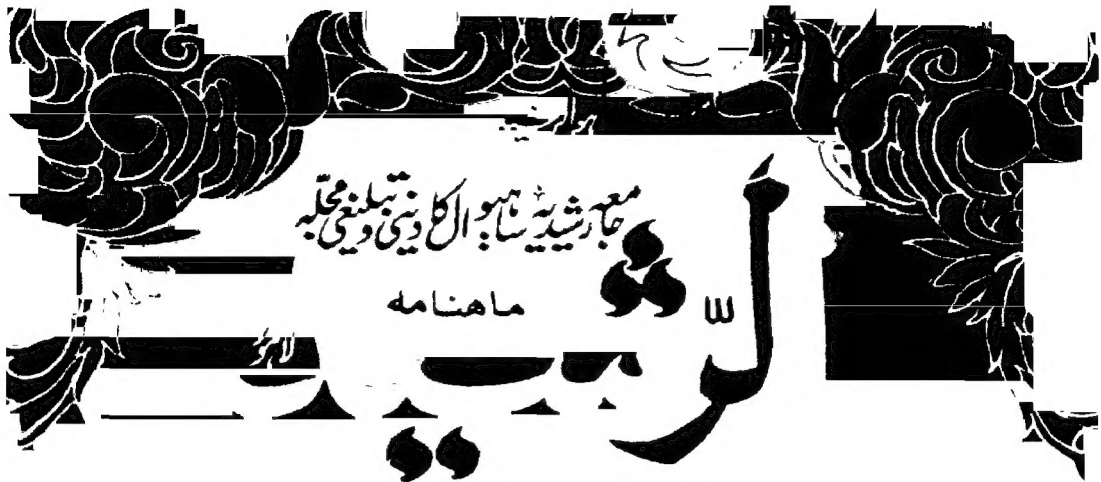 جامعہ رشیدیہ ساہیوال کا دینی و تبلیغی مجلہ
ماهنامه
الرشید
لاہور